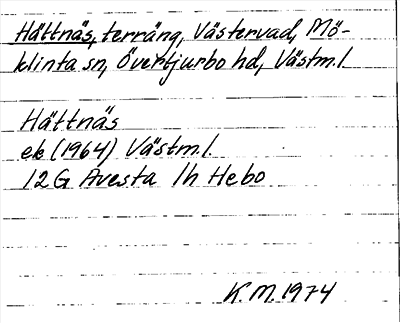 Hättnäs, terräng, Västervad, Mö-
klinta sn, Övertjurbo hd, Västm.l
Hättnäs
ek (1964) Västm.l.
12G Avesta 1h Hebo
K.M. 1974